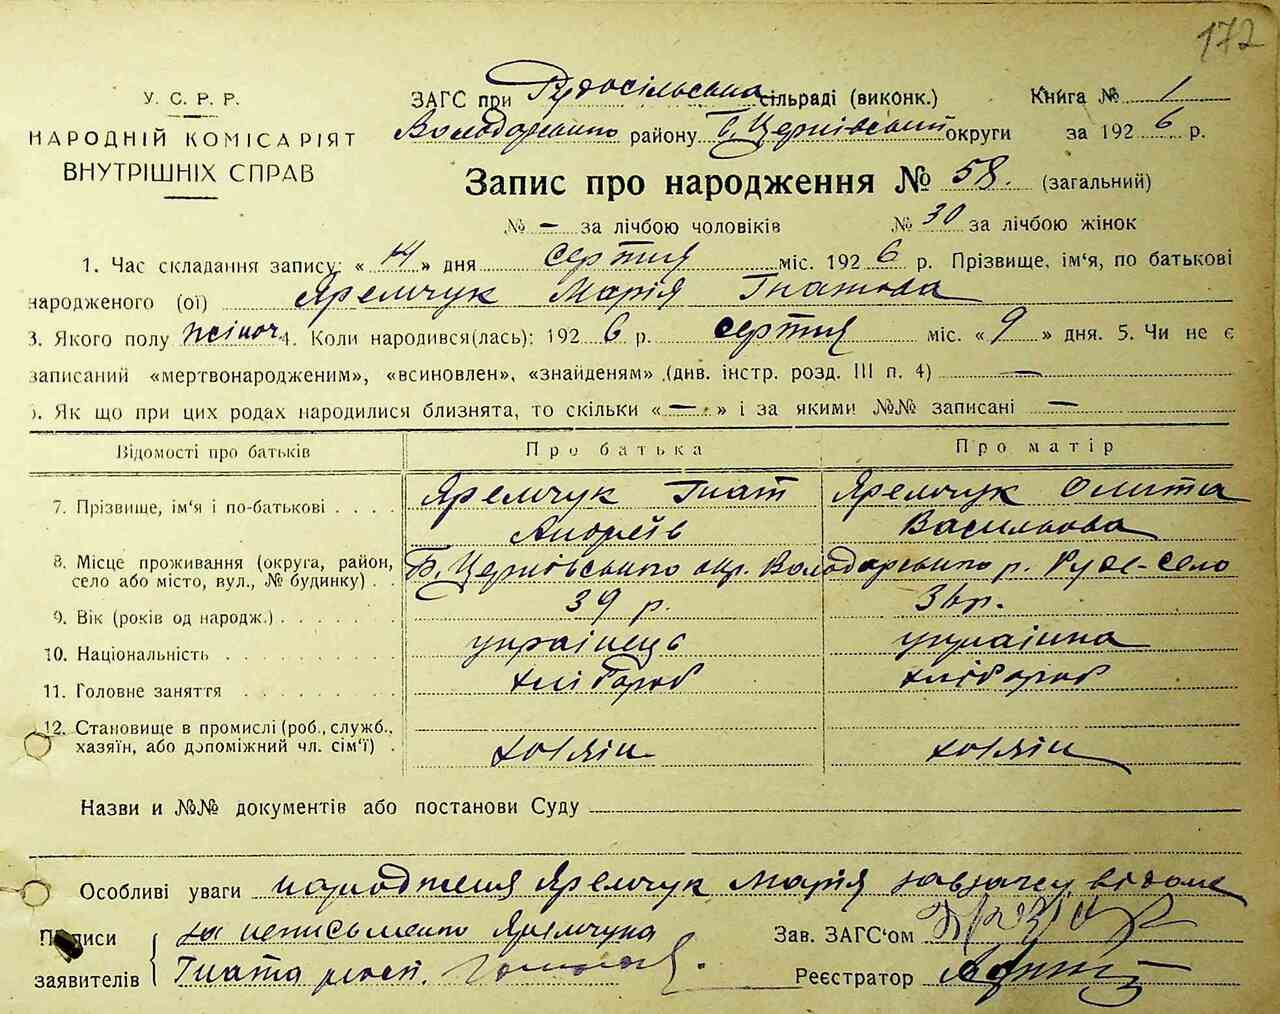 172
У. С. Р. Р.
НАРОДНІЙ КОМІСАРІЯТ
ВНУТРІШНІХ СПРАВ
ЗАГС при Рудосільська сільраді (виконк.) Книга № 1
Володарського району Б. Церківський округи за 1926 р.
Запис про народження № 58. (загальний)
№ — за лічбою чоловіків № 30 за лічбою жінок
1. Час складання запису: «14» дня серпня міс. 1926 р. Прізвище, ім'я, по батькові
народженого (ої) Яремчук Марія Гнатова
3. Якого полу жіноч. 4. Коли народився(лась): 1926 р. серпня міс. «9» дня. 5. Чи не є
записаний «мертвонародженим», «всиновлен», «знайденям» (див. інстр. розд. III п. 4) —
6. Як що при цих родах народилися близнята, то скільки «—» і за якими №№ записані —
Відомості про батьків Про батька Про матір
7. Прізвище, ім'я і по-батькові Яремчук Гнат Яремчук Олита
Андреїв Василькова
8. Місце проживання (округа, район, село або місто, вул., № будинку) Б. Церківського окр. Володарського р. Руде-село
9. Вік (років од народж.) 39 р. 36 р.
10. Національність українець українка
11. Головне заняття хлібороб хлібороб
12. Становище в промислі (роб., служб.,
хазяїн, або допоміжний чл. сім'ї) хозяін хозяін
Назви и №№ документів або постанови Суду
Особливі уваги народженя Яремчук Марія
Підписи за неписьменого Яремчука Зав. ЗАГС'ом
заявителів Гната Реєстратор